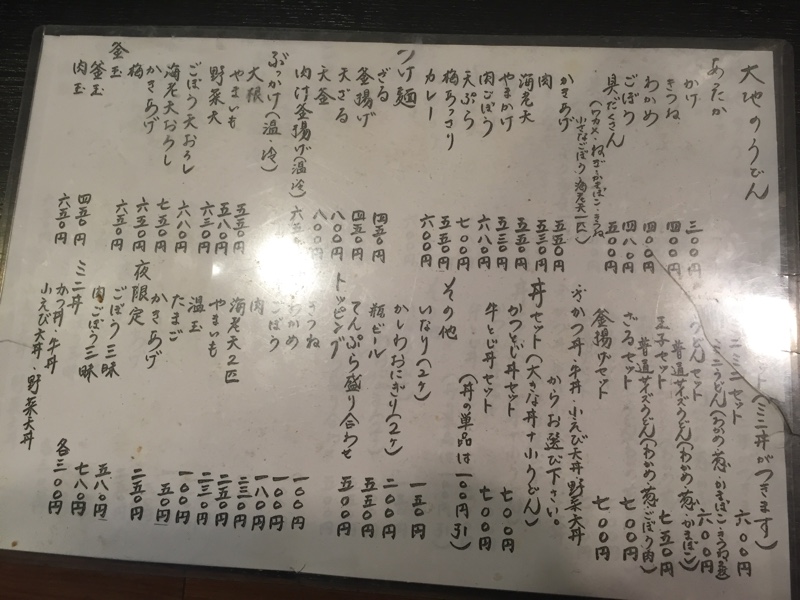 大地のうどん
あたたか
かけ 三〇〇円
きつね 四〇〇円
わかめ 四〇〇円
ごぼう 四八〇円
具だくさん 五〇〇円
(ワカメ・ねぎ・かまぼこ・きつね
小さなごぼう・海老天一匹)
かきあげ 五五〇円
肉 五三〇円
海老天 五五〇円
やまかけ 五三〇円
肉ごぼう 六八〇円
天ぷら 七〇〇円
梅あっさり 五五〇円
カレー 六〇〇円
つけ麺
ざる 四五〇円
釜揚げ 四五〇円
天ざる 八〇〇円
天釜 八〇〇円
肉け釜揚げ(温・冷)
ぶっかけ(温・冷)
大根
やまいも 五五〇円
野菜天 五八〇円
ごぼう天おろし 六三〇円
海老天おろし 六八〇円
かきあげ 七五〇円
梅 六五〇円
釜玉
釜玉 四五〇円
肉玉 六五〇円
セット(ミニ丼がつきます)
ミニミニセット 六〇〇円
玉子セット 七五〇円
普通サイズうどん(わかめ・葱・ごぼう肉)
ざるセット 七〇〇円
釜揚げセット 七〇〇円
※かつ丼・牛丼・小えび天丼・野菜天丼
からお選び下さい。
丼セット(大きな丼+小うどん)
かつとじ丼セット 七〇〇円
牛とじ丼セット 七〇〇円
(丼の単品は一〇〇円引)
その他
いなり(2ヶ) 一五〇円
かしわおにぎり(2ヶ) 二〇〇円
瓶ビール 五五〇円
てんぷら盛り合わせ 五〇〇円
トッピング
きつね 一〇〇円
わかめ 一〇〇円
ごぼう 一八〇円
肉 二三〇円
海老天2匹 二五〇円
やまいも 二三〇円
温玉 一〇〇円
たまご 五〇円
かきあげ 二五〇円
夜限定
ごぼう三昧 五八〇円
肉ごぼう三昧 七八〇円
ミニ丼
かつ丼・牛丼 各三〇〇円
小えび天丼・野菜天丼